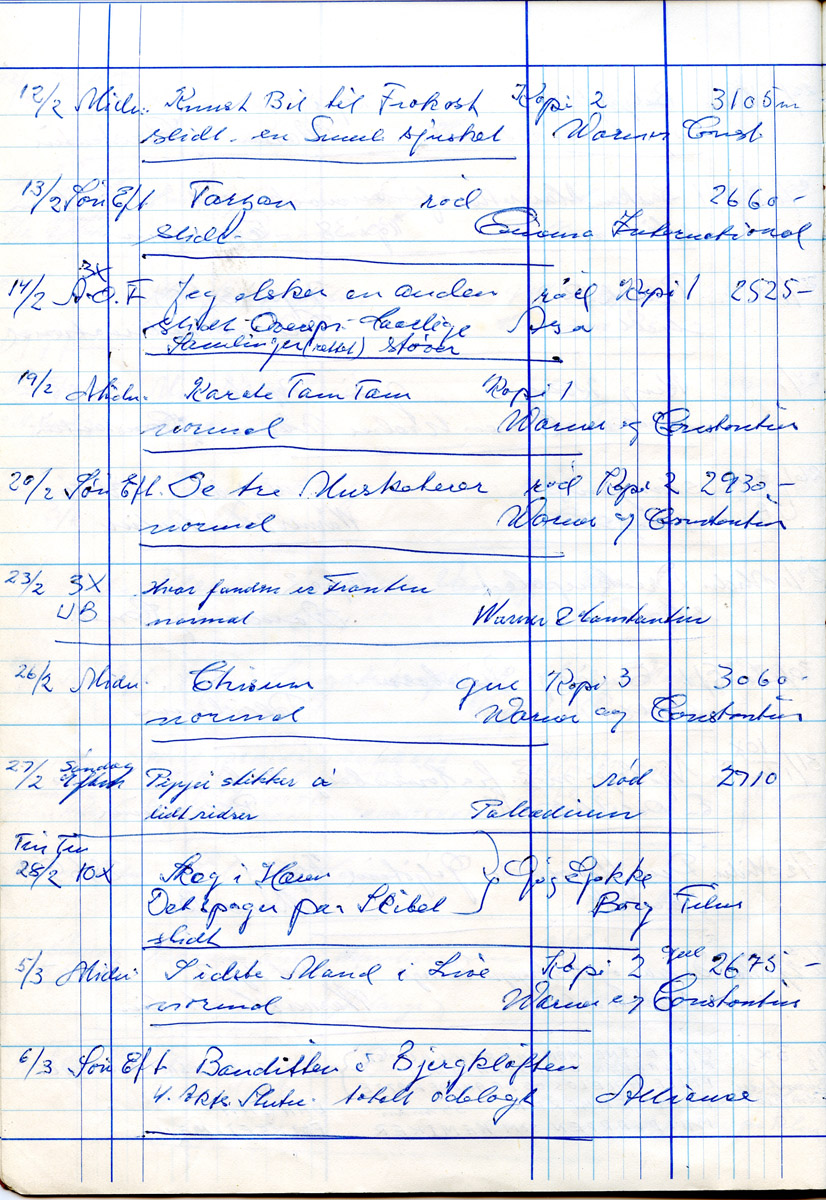 12/2 Midn. Knust Bil til Frokost Kopi 2 3105 m
slidt - en Smule sjusket Warner Const
13/2 Søn Eft Tarzan rød 2660 -
slidt - Cinema International
3X
14/2 A.O.F Jeg elsker en anden rød Kopi 1 2525 -
slidt - Overspr. Daarlige Asa
Samlinger (rettet) støvr
19/2 Midn. Karate Tam Tam Kopi 1
normal Warner og Constantin
20/2 Søn Eft. De tre Musketerer rød Kopi 2 2930 -
normal Warner og Constantin
23/2 3X Hvor fanden er Fronten
UB normal Warner & Constantin
26/2 Midn. Chisum gul Kopi 3 3060 -
normal Warner og Constantin
27/2 Søndag Pippi stikker a rød 2710
Eftm lidt ridser Palladium
Tin Tin
28/2 10X Skeg i Gøg & Gokke
Det spøger paa Slottet Borg Film
slidt
5/3 Midn. Sidste Mand i Live Kopi 2 gul 2675 -
normal Warner og Constantin
6/3 Søn Eft Banditten i Bjergkløften
4. Akts Slutn. totalt ødelagt Alliance